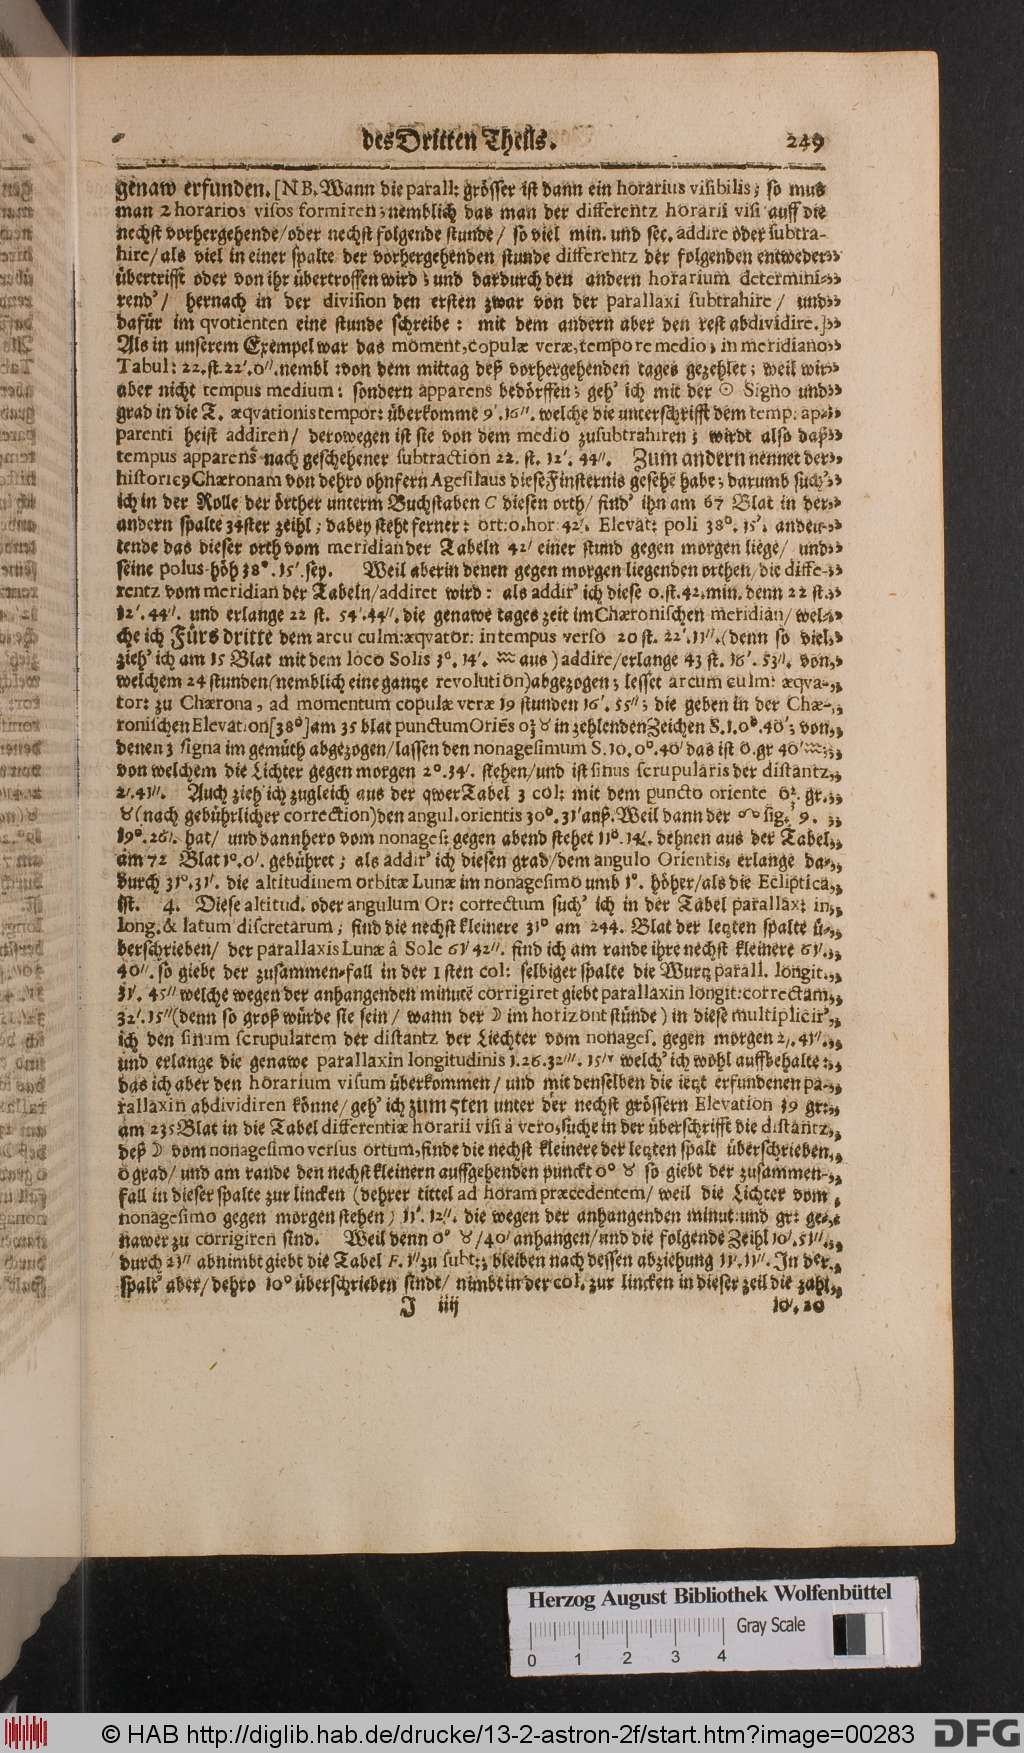 des Dritten Theils. 249
genaw erfunden. [NB. Wann die parall: grösser ist dann ein horarius visibilis; so mus
man 2 horarios visos formiren; nemblich das man der differentz horarii visi auff die
nechst vorhergehende/ oder nechst folgende stunde/ so viel min. und sec. addire oder subtra-
hire/ als viel in einer spalte der vorhergehenden stunde differentz der folgenden entweder
übertrifft oder von ihr übertroffen wird; und dardurch den andern horarium determini-
rend'/ hernach in der division den ersten zwar von der parallaxi subtrahire/ und
dafür im qvotienten eine stunde schreibe: mit dem andern aber den rest abdividire.]
Als in unserem Exempel war das moment, copulæ veræ, tempore medio; in meridiano
Tabul: 22. st. 22'. 0''. nembl: von dem mittag deß vorhergehenden tages gezehlet; weil wir
aber nicht tempus medium: sondern apparens bedörffen; geh' ich mit der ☉ Signo und
grad in die T. æqvationis tempor: überkomme 9'. 16''. welche die unterschrifft dem temp. ap-
parenti heist addiren/ derowegen ist sie von dem medio zusubtrahiren; wirdt also daß
tempus apparens nach geschehener subtraction 22. st. 12'. 44''. Zum andern nennet der
historicy Chæronam von dehro ohnfern Agesilaus diese Finsternis gesehē habe; darumb such'
ich in der Rolle der örther unterm Buchstaben C diesen orth/ find' ihn am 67 Blat in der
andern spalte 34ster zeihl; dabey steht ferner: ort: 0. hor. 42'. Elevat: poli 38°. 15'. andeu-
tende das dieser orth vom meridian der Tabeln 42' einer stund gegen morgen liege/ und
seine polus-höh 38°. 15'. sey. Weil aber in denen gegen morgen liegenden orthen/ die diffe-
rentz vom meridian der Tabeln/ addiret wird: als addir' ich diese 0. st. 42. min. denn 22 st.
12'. 44''. und erlange 22 st. 54'. 44''. die genawe tages zeit im Chæronischen meridian/ wel-
che ich Fürs dritte dem arcu culm: æqvator: in tempus verso 20 st. 22'. 11''. (denn so viel
zieh' ich am 15 Blat mit dem loco Solis 3°. 14'. ♒ aus) addire/ erlange 43 st. 16'. 53''. von
welchem 24 stunden (nemblich eine gantze revolution) abgezogen; lesset arcum culm: æqva-
tor: zu Chærona, ad momentum copulæ veræ 19 stunden 16'. 55''; die geben in der Chæ-
ronischen Elevation [38°] am 35 blat punctum Oriēs 0⅔ ♉ in zehlenden Zeichen S. 1. 0°. 40'; von
denen 3 signa im gemüth abgezogen/ lassen den nonagesimum S. 10. 0°. 40' das ist 0. gr 40' ♒;
von welchem die Lichter gegen morgen 2°. 34'. stehen/ und ist sinus scrupularis der distantz
2'. 41''. Auch zieh' ich zugleich aus der qwer Tabel 3 col: mit dem puncto oriente 0⅔. gr.
♉ (nach gebührlicher correction) den angul. orientis 30°. 31' auß. Weil dann der ☍ sig. 9.
19°. 26'. hat/ und dannhero vom nonages: gegen abend stehet 11°. 14'. dehnen aus der Tabel
am 72 Blat 1°. 0'. gebühret; als addir' ich diesen grad/ dem angulo Orientis; erlange da-
durch 31°. 31'. die altitudinem orbitæ Lunæ im nonagesimo umb 1°. höher/ als die Ecliptica
ist. 4. Diese altitud. oder angulum Or: correctum such' ich in der Tabel parallax: in
long. & latum discretarum; find die nechst kleinere 31° am 244. Blat der letzten spalte ü-
berschrieben/ der parallaxis Lunæ â Sole 61' 42''. find ich am rande ihre nechst kleinere 61'.
40''. so giebt der zusammen-fall in der 1sten col: selbiger spalte die Wurtz parall. longit.
31'. 45'' welche wegen der anhangenden minutē corrigiret giebt parallaxin longit: correctam
32'. 15'' (denn so groß würde sie sein/ wann der ☽ im horizont stünde) in diese multiplicir'
ich den sinum scrupularem der distantz der Liechter vom nonages. gegen morgen 2'. 41''.
und erlange die genawe parallaxin longitudinis 1. 26. 32'''. 15'ᵛ welch' ich wohl auffbehalte:
das ich aber den horarium visum überkommen/ und mit denselben die ietzt erfundenen pa-
rallaxin abdividiren könne/ geh' ich zum 5ten unter der nechst grössern Elevation 39 gr:
am 235 Blat in die Tabel differentiæ horarii visi â vero, suche in der überschrifft die distantz
deß ☽ vom nonagesimo versus ortum, finde die nechst kleinere der letzten spalt überschrieben
0 grad/ und am rande den nechst kleinern auffgehenden punckt 0° ♉ so giebt der zusammen-
fall in dieser spalte zur lincken (dehrer tittel ad horam præcedentem/ weil die Lichter vom
nonagesimo gegen morgen stehen) 11'. 12''. die wegen der anhangenden minut: und gr: ge-
nawer zu corrigiren sind. Weil denn 0° ♉/ 40' anhangen/ und die folgende Zeihl 10'. 51''.
durch 21'' abnimbt giebt die Tabel F. 1'' zu subt:; bleiben nach dessen abziehung 11'. 11''. In der
spalt' aber/ dehro 10° überschrieben sindt/ nimbt in der col. zur lincken in dieser zeil die zahl
J iiij 10'. 20
Herzog August Bibliothek Wolfenbüttel
Gray Scale
0 1 2 3 4
© HAB http://diglib.hab.de/drucke/13-2-astron-2f/start.htm?image=00283 DFG